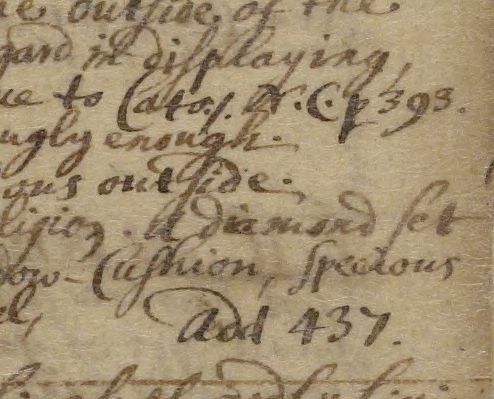 outside of the
gard in displaying,
ue to Cato. /. N. C. p 393.
ugly enough.
ous outside.
ligion. A diamond set
dow-Cushion, specious
el, Add 437.